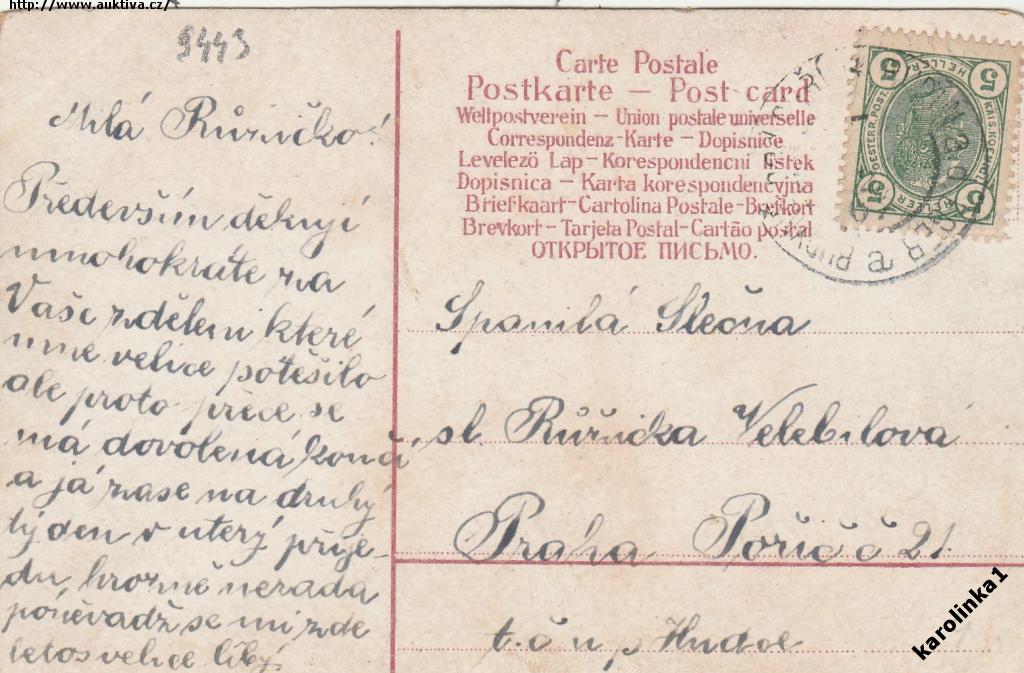 http://www.auktiva.cz/
9443
Milá Růžičko!
Především děkuji
mnohokráte za
Vaše zděleni které
mne velice potěšilo
ale proto přece se
má dovolená končí
a já zase na druhý
týden v úterý přije-
du, hrozně nerada
poněvadž se mi zde
letos velice líbý
Carte Postale
Postkarte – Post card
Weltpostverein – Union postale universelle
Correspondenz-Karte – Dopisnice
Levelező Lap – Korespondencni listek
Dopisnica – Karta korespondencyjna
Briefkaart – Cartolina Postale – Brefkort
Brevkort – Tarjeta Postal – Cartão postal
ОТКРЫТОЕ ПИСЬМО.
5 HELLER 5
OESTERR. POST
KAIS. KOENIGL.
5 HELLER 5
Spanilá Slečna
sl. Růžička Velebilová
Praha Poříč č 21.
t. č u p
karolinka1